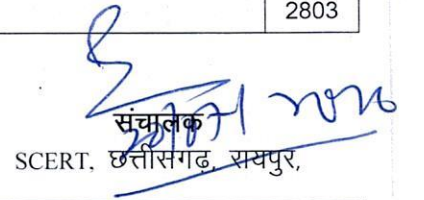 2803
संचालक
SCERT, छत्तीसगढ़, रायपुर,